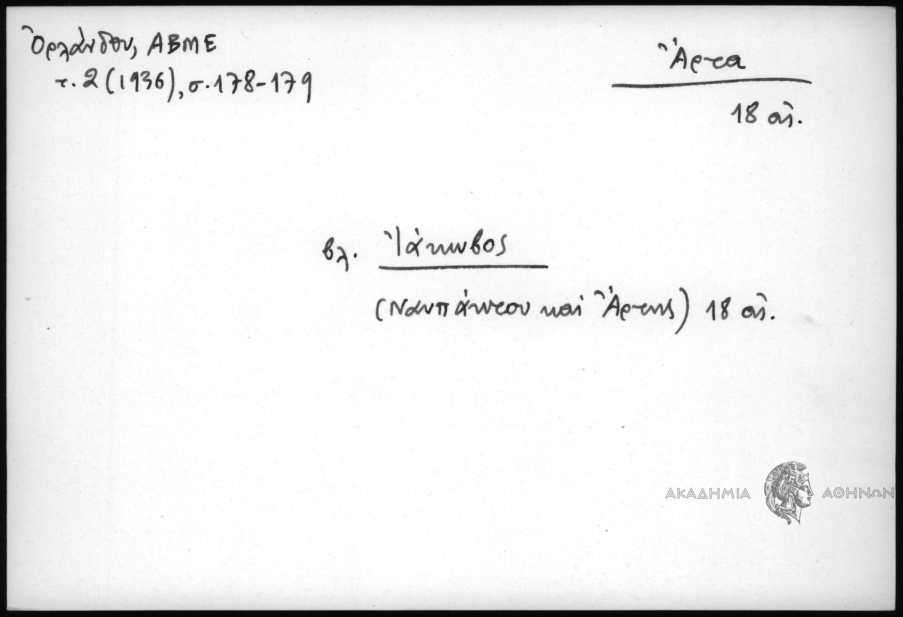 Ὀρλάνδου, ΑΒΜΕ
τ. 2 (1936), σ. 178-179
Ἄρτα
18 αἰ.
βλ. Ἰάκωβος
(Ναυπάκτου καὶ Ἄρτης) 18 αἰ.
ΑΚΑΔΗΜΙΑ ΑΘΗΝΩΝ